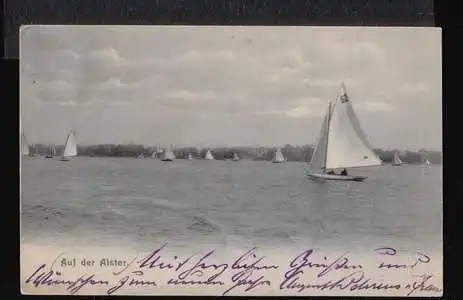 Auf der Alster.
Mit herzlichen Grüßen und
Wünschen zum neuen Jahre August Behrens u. Frau